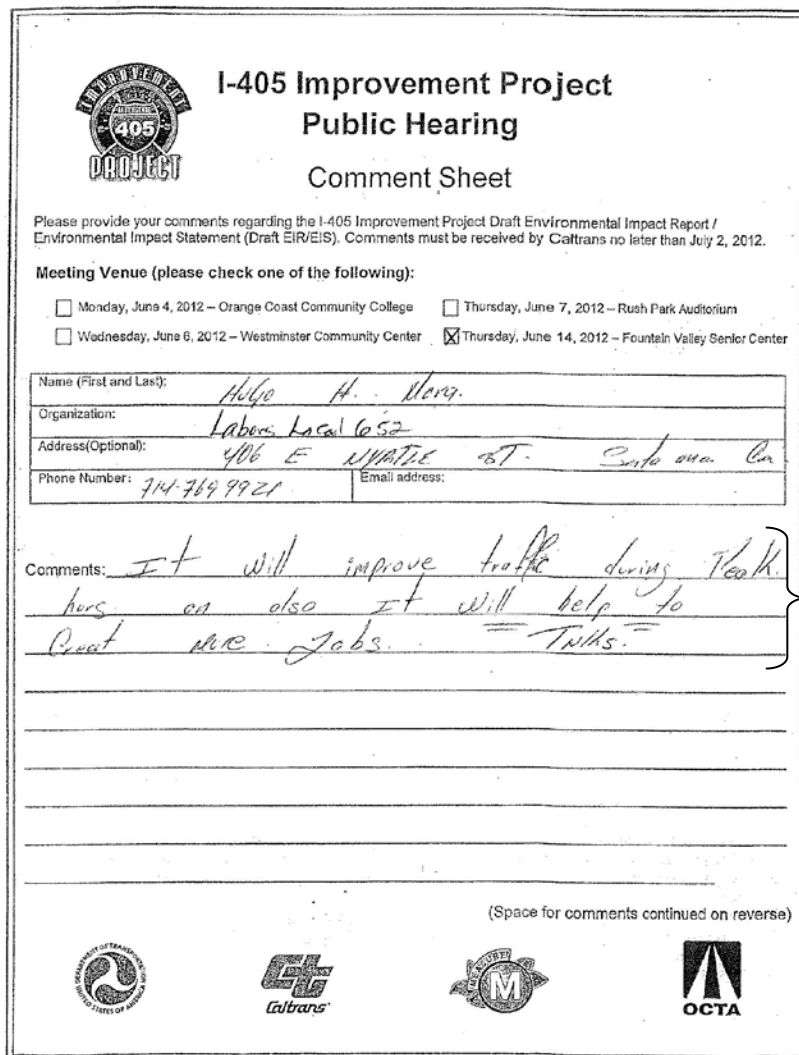 IMPROVEMENT
405
PROJECT
I-405 Improvement Project
Public Hearing
Comment Sheet
Please provide your comments regarding the I-405 Improvement Project Draft Environmental Impact Report /
Environmental Impact Statement (Draft EIR/EIS). Comments must be received by Caltrans no later than July 2, 2012.
Meeting Venue (please check one of the following):
Monday, June 4, 2012 – Orange Coast Community College
Thursday, June 7, 2012 – Rush Park Auditorium
Wednesday, June 6, 2012 – Westminster Community Center
Thursday, June 14, 2012 – Fountain Valley Senior Center
Name (First and Last): Hugo H. Mora.
Organization: Labors Local 652
Address(Optional): 406 E MYRTLE ST. Santa ana Ca
Phone Number: 714-769 9921 Email address:
Comments: It will improve traffic during Peak.
hors an also It will help to
Creat more Jobs. Tnks.
(Space for comments continued on reverse)
DEPARTMENT OF TRANSPORTATION
UNITED STATES OF AMERICA
Caltrans
MEASURE
M
OCTA